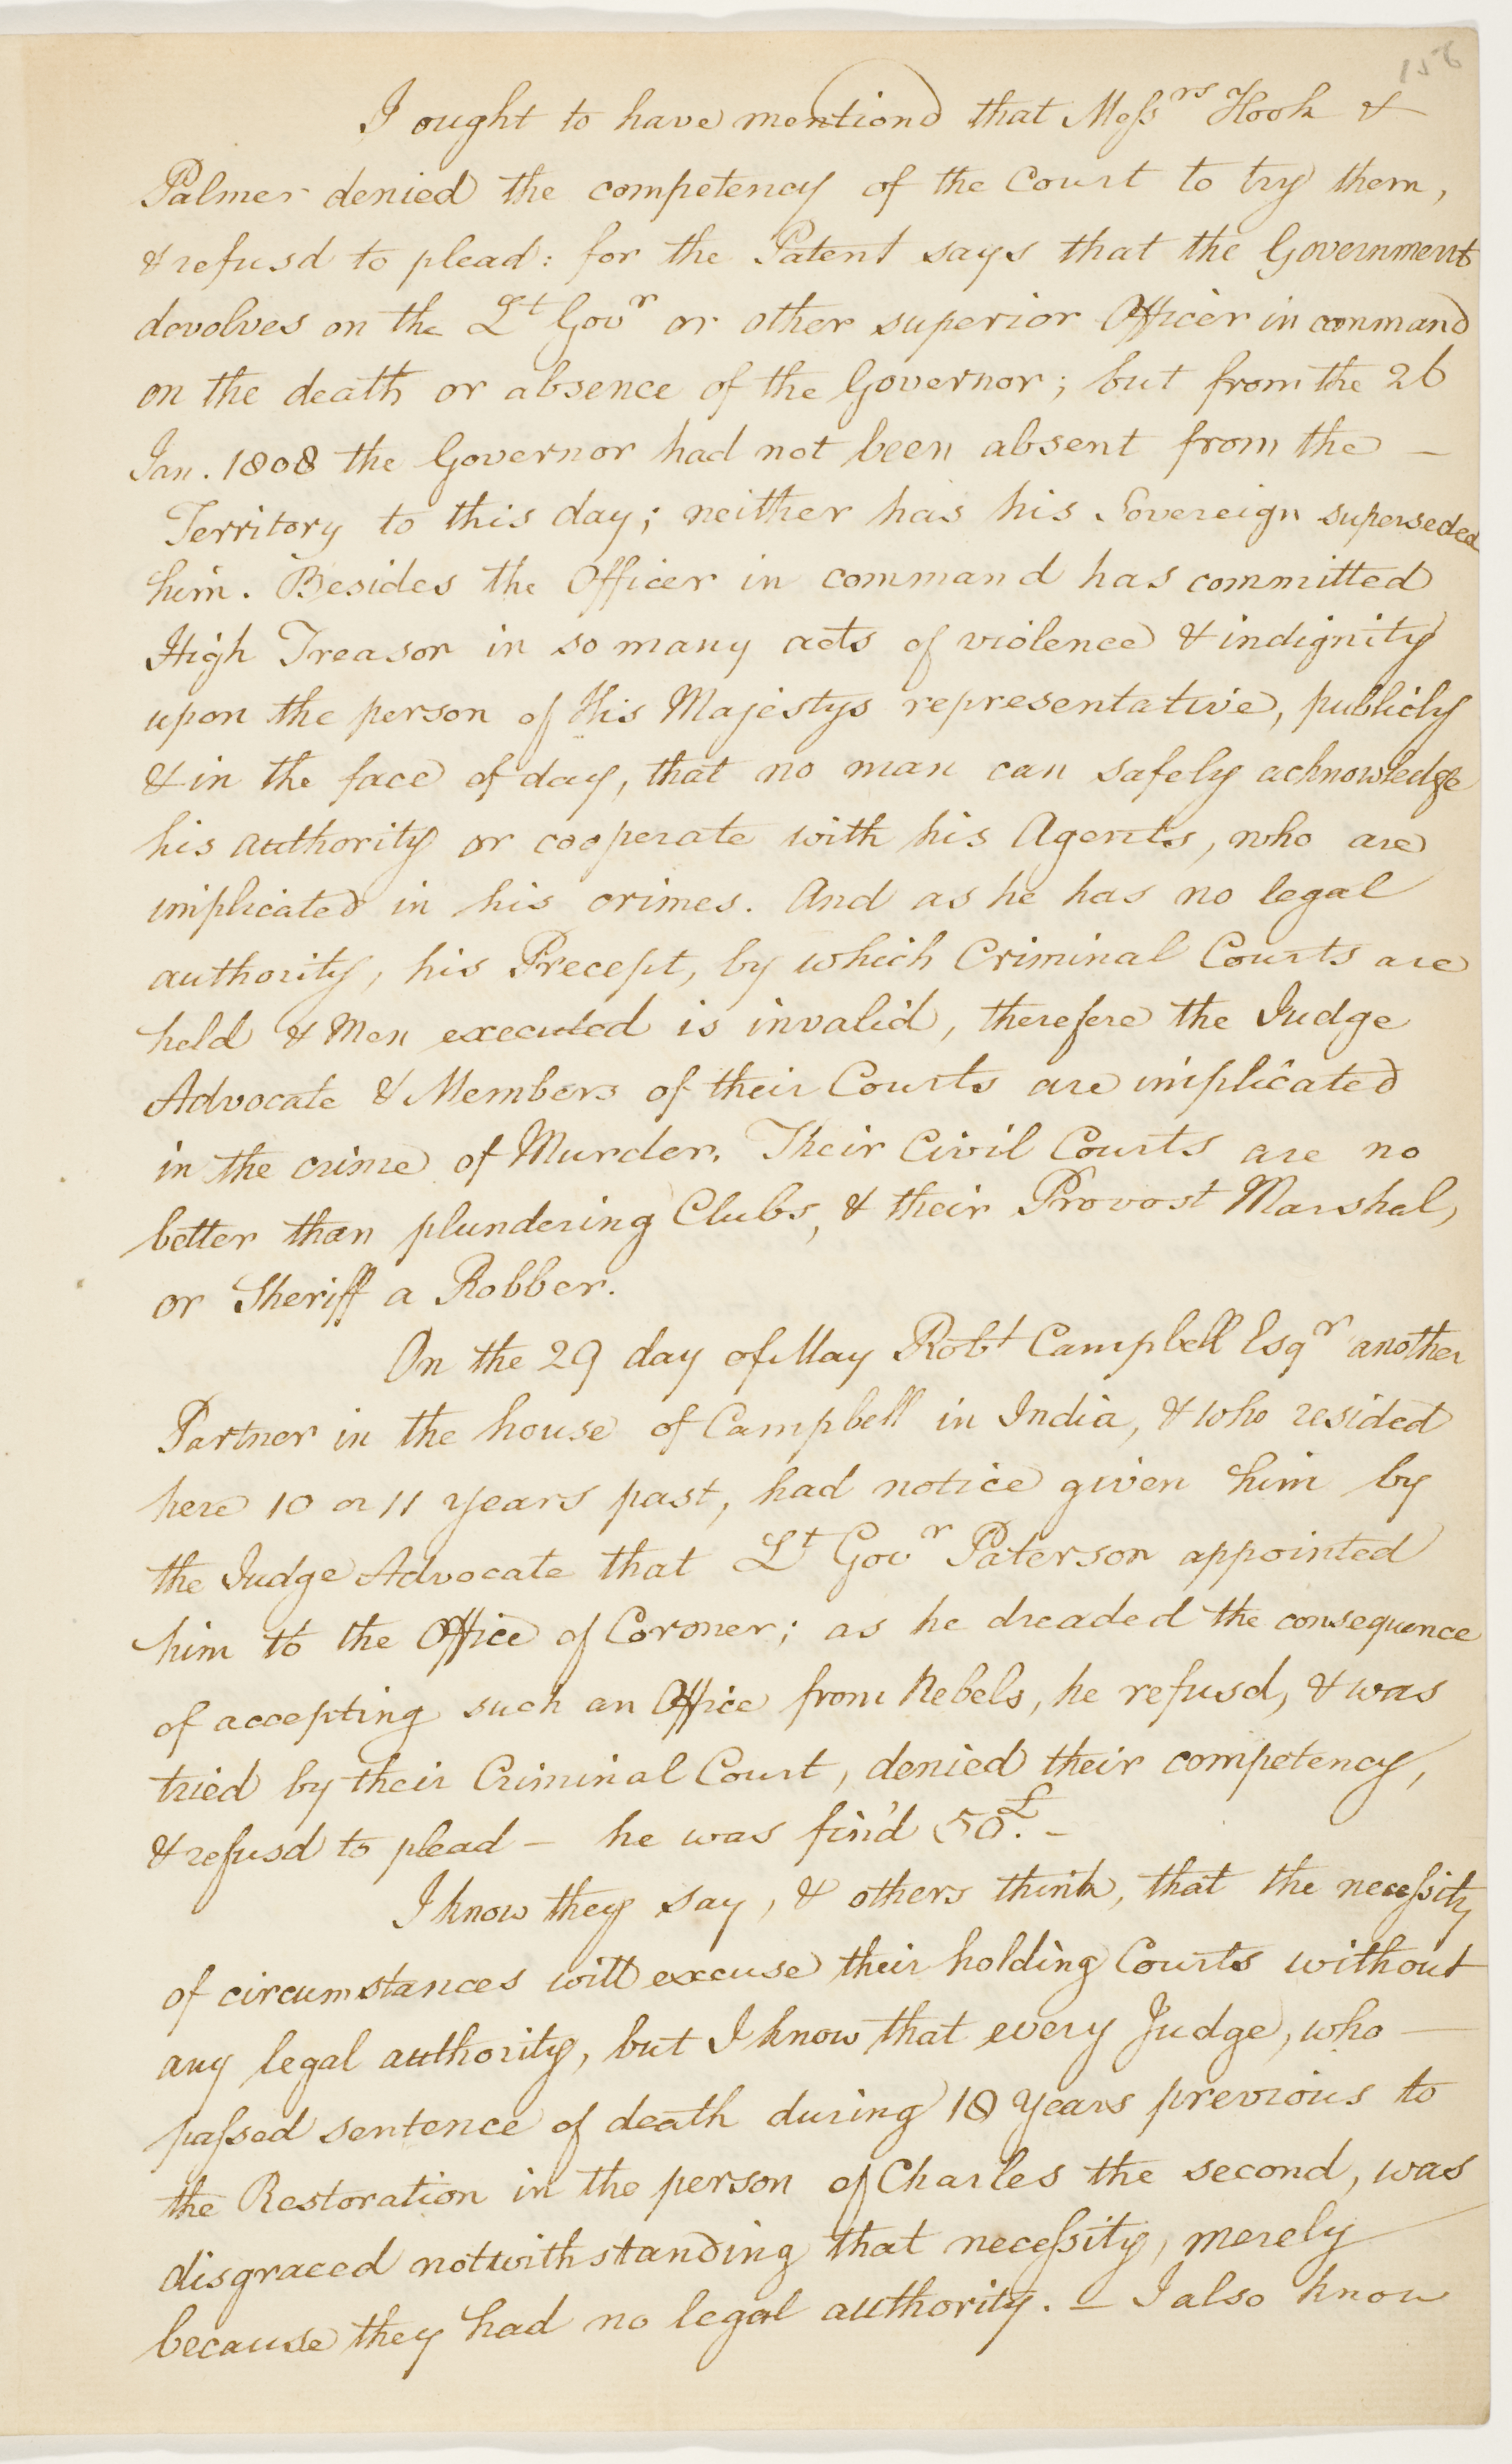 156
I ought to have mentiond that Messrs Hook &
Palmer denied the competency of the Court to try them,
& refusd to plead: for the Patent says that the Government
devolves on the Lt Govr or other superior Officer in command
on the death or absence of the Governor; but from the 26
Jan. 1808 the Governor had not been absent from the —
Territory to this day; neither has his Sovereign superseded
him. Besides the Officer in command has committed
High Treason in so many acts of violence & indignity
upon the person of His Majestys representative, publicly
& in the face of day, that no man can safely acknowledge
his authority or cooperate with his Agents, who are
implicated in his crimes. And as he has no legal
authority, his Precept, by which Criminal Courts are
held & Men executed is invalid, therefore the Judge
Advocate & Members of their Courts are implicated
in the crime of Murder. Their Civil Courts are no
better than plundering Clubs, & their Provost Marshal,
or Sheriff a Robber.
On the 29 day of May Robt Campbell Esqr another
Partner in the house of Campbell in India, & who resided
here 10 or 11 years past, had notice given him by
the Judge Advocate that Lt Govr Paterson appointed
him to the Office of Coroner; as he dreaded the consequence
of accepting such an Office from Rebels, he refusd, & was
tried by their Criminal Court, denied their competency,
& refusd to plead — he was fin'd 50£. —
I know they say, & others think, that the necessity
of circumstances will excuse their holding Courts without
any legal authority, but I know that every Judge, who —
passed sentence of death during 18 years previous to
the Restoration in the person of Charles the second, was
disgraced notwithstanding that necessity, merely
because they had no legal authority. — I also know